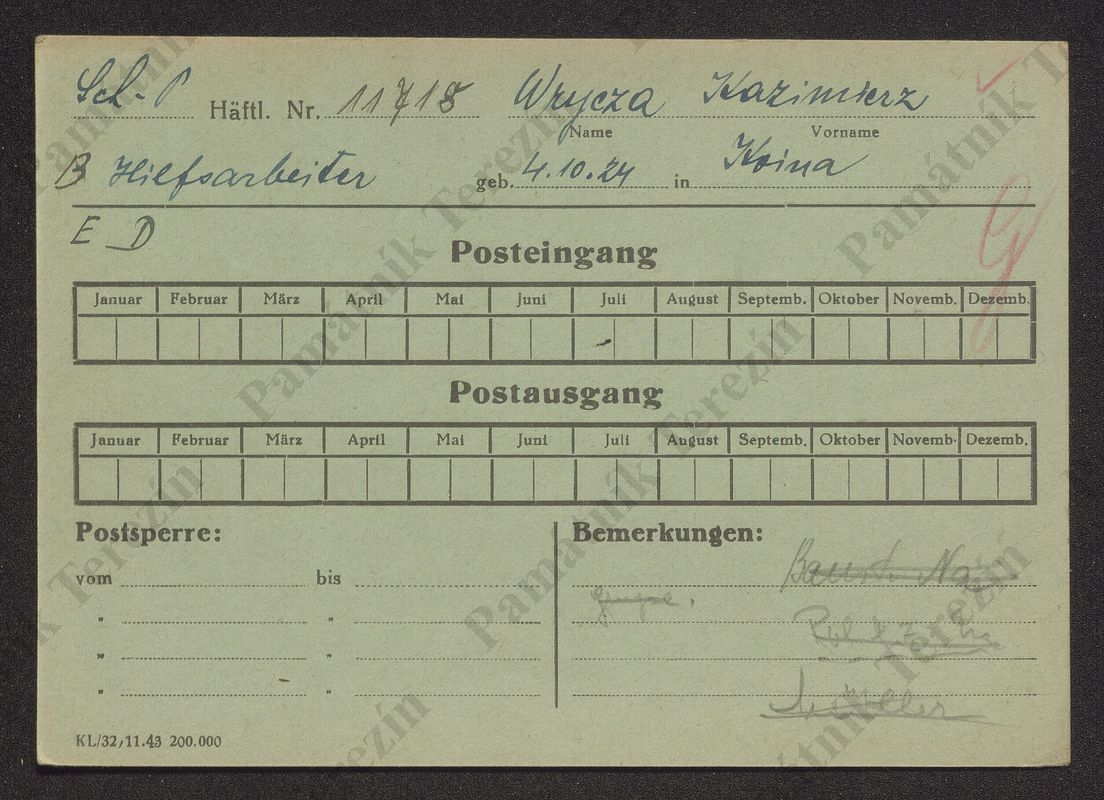 Sch-P Häftl. Nr. 11718 Wrycza Kazimierz
Name Vorname
B Hilfsarbeiter geb. 4.10.24 in
E D
Posteingang
Januar Februar März April Mai Juni Juli August Septemb. Oktober Novemb. Dezemb.
Postausgang
Januar Februar März April Mai Juni Juli August Septemb. Oktober Novemb. Dezemb.
Postsperre: Bemerkungen:
vom bis
" "
" "
" "
Müller
KL/32, 11.43 200.000
Památník Terezín